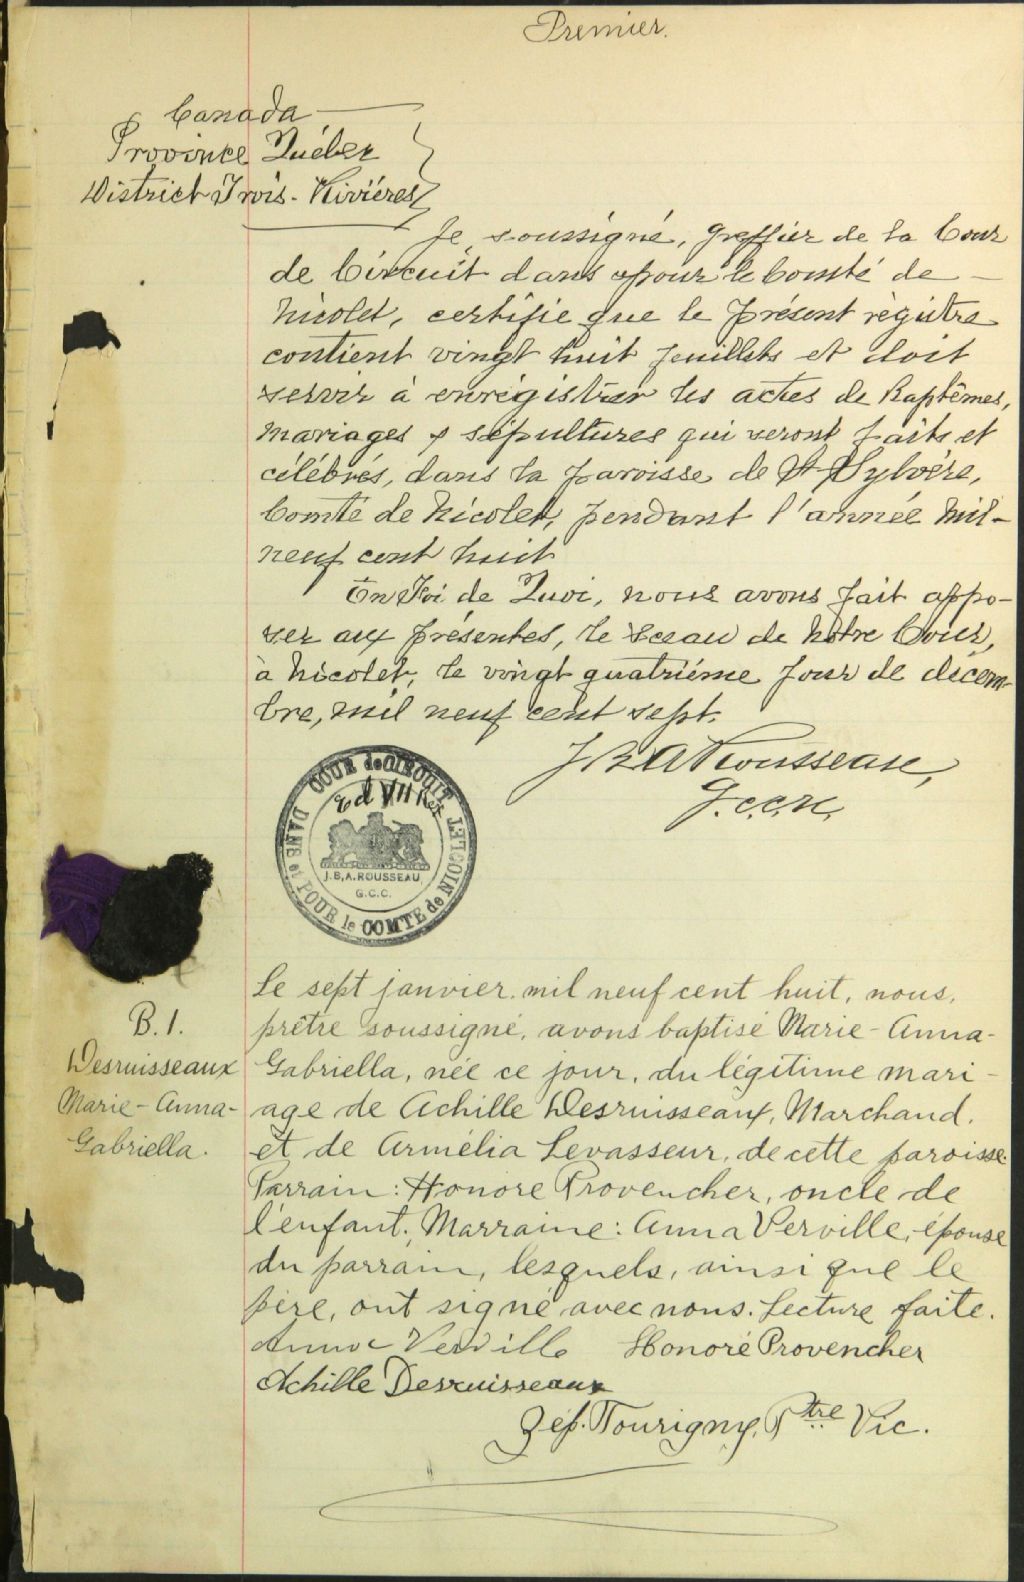 Premier.
Canada
Province Québec
District Trois-Rivières
Je, soussigné, greffier de la Cour
de Circuit dans & pour le Comté de
Nicolet, certifie que le présent régistre
contient vingt huit feuillets et doit
servir à enrégistrer les actes de Baptêmes,
mariages & sépultures qui seront faits et
célébrés, dans la paroisse de St Sylvère,
Comté de Nicolet, pendant l'année mil-
neuf cent huit
En Foi de Quoi, nous avons fait appo-
ser aux présentes, le sceau de Notre Cour,
à Nicolet, le vingt quatrième jour de décem-
bre, mil neuf cent sept.
J B A Rousseau,
G.C.C.N.
COUR de CIRCUIT
DANS et POUR le COMTE de NICOLET
Ed VII Rex
J.B.A. ROUSSEAU
G.C.C.
B.1.
Desruisseaux
Marie-Anna-
Gabriella.
Le sept janvier mil neuf cent huit, nous,
prêtre soussigné, avons baptisé Marie-Anna-
Gabriella, née ce jour, du légitime mari-
age de Achille Desruisseaux, Marchand,
et de Armélia Levasseur, de cette paroisse.
Parrain: Honoré Provencher, oncle de
l'enfant; Marraine: Anna Verville, épouse
du parrain, lesquels, ainsi que le
père, ont signé avec nous. Lecture faite.
Anna Verville Honoré Provencher
Achille Desruisseaux
Zéf. Tourigny, Ptre Vic.